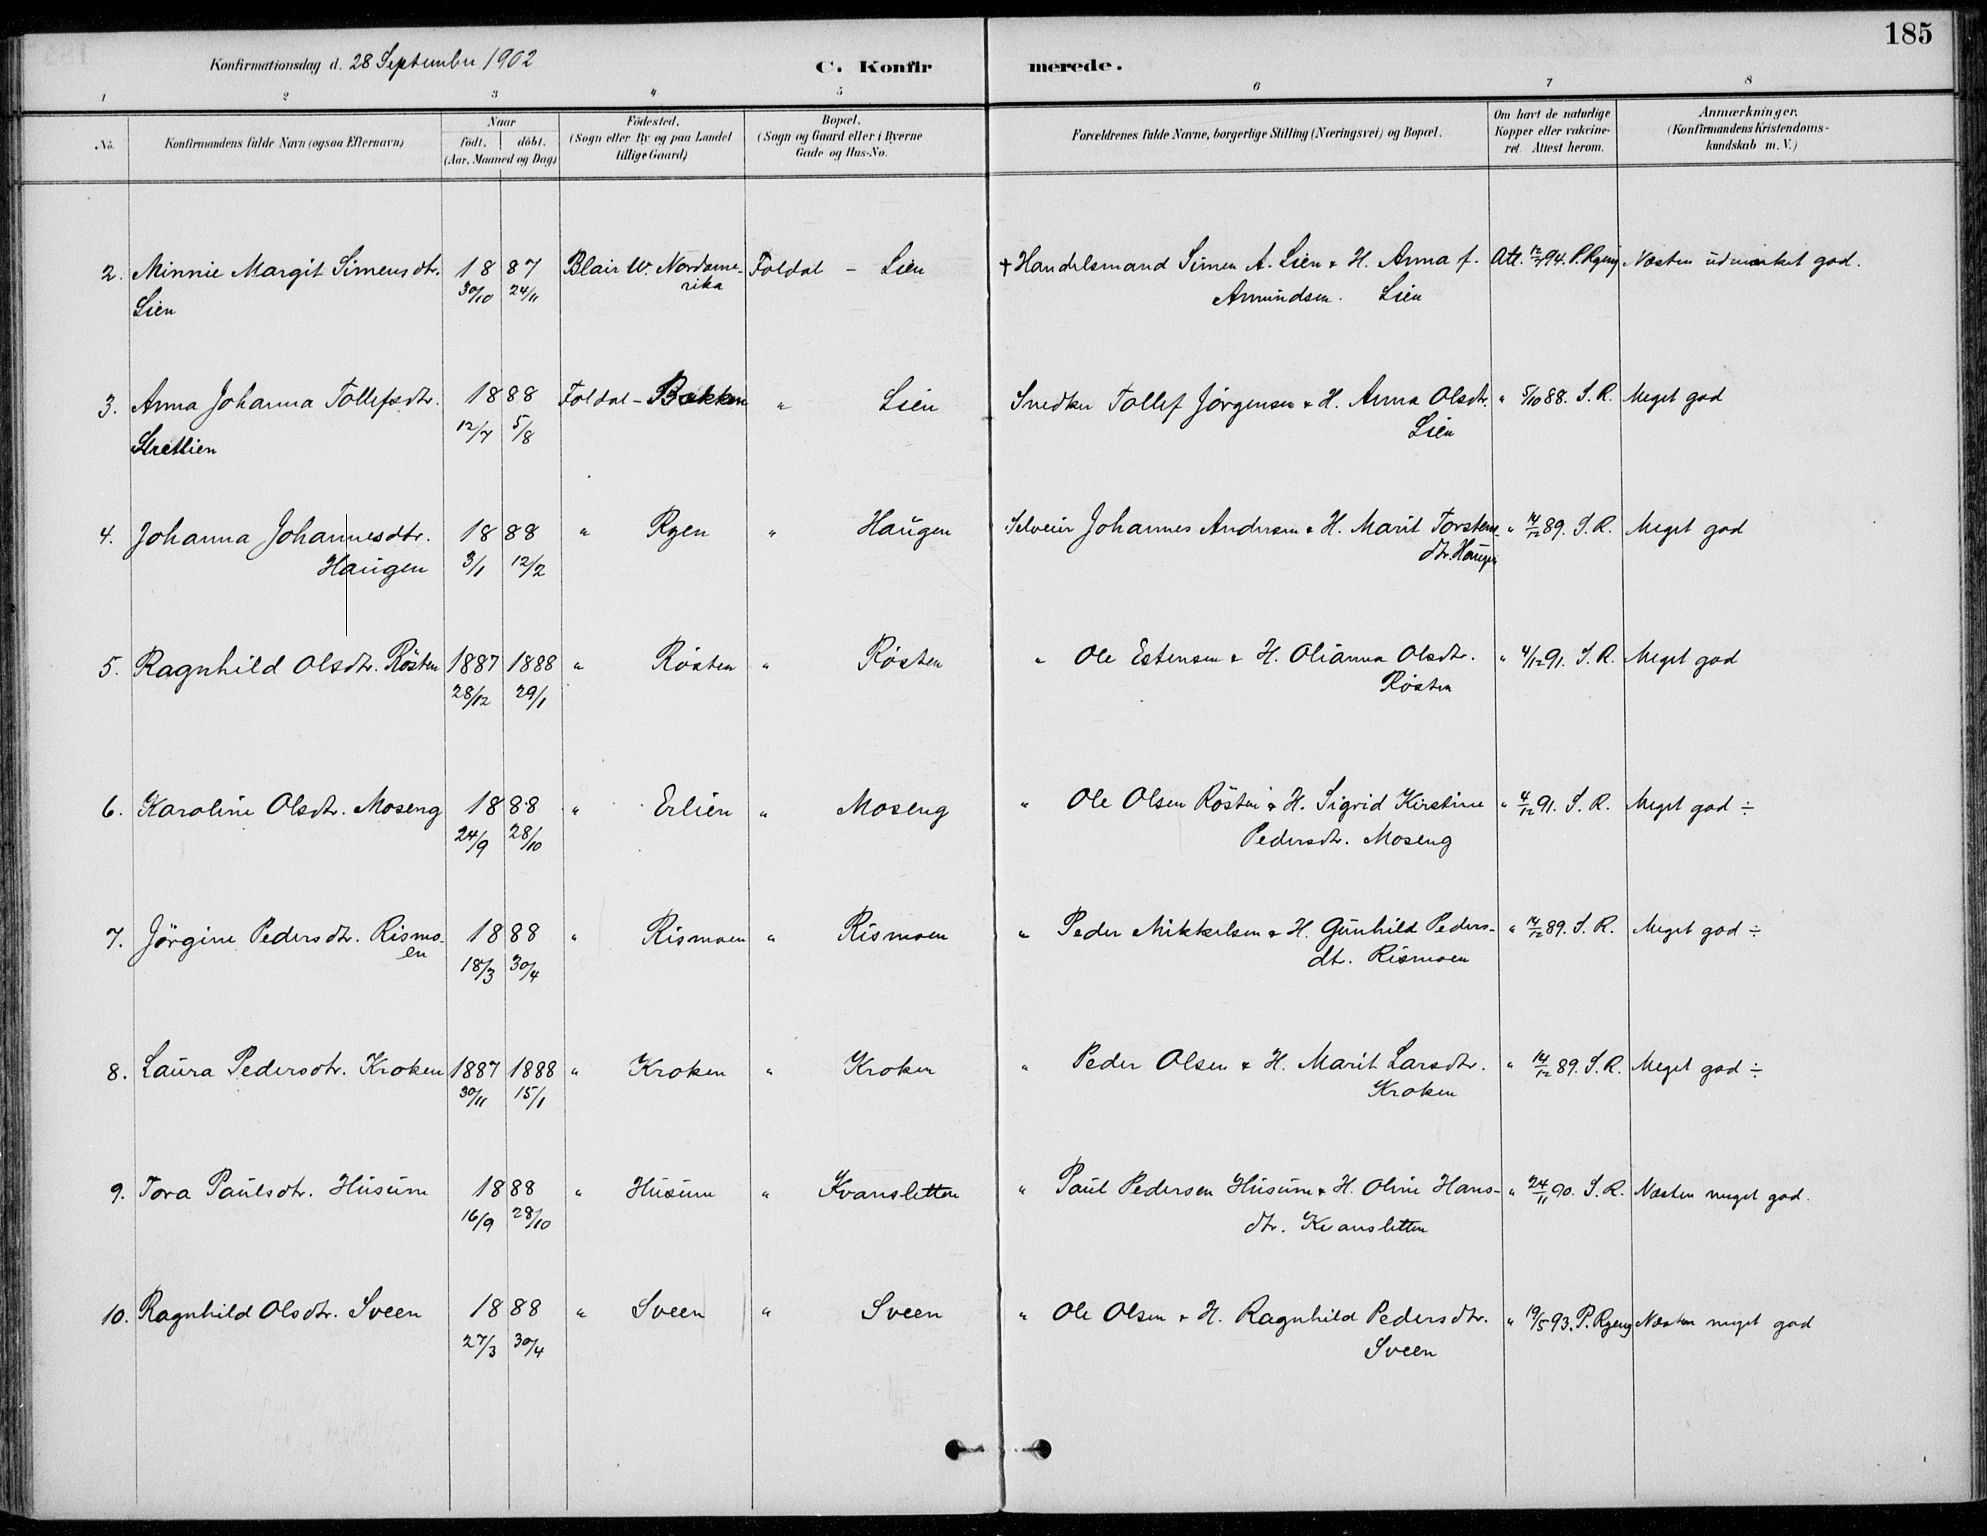 185
Konfirmationsdag d. 28 September 1902 C. Konfirmerede.
1 2 3 4 5 6 7 8
No. Konfirmandens fulde Navn (ogsaa Efternavn) Naar født. døbt. (Aar, Maaned og Dag) Fødested. (Sogn eller By og paa Landet tillige Gaard) Bopæl. (Sogn og Gaard eller i Byerne Gade og Hus-No. Forældrenes fulde Navne, borgerlige Stilling (Næringsvei) og Bopæl. Om havt de naturlige Kopper eller vakcineret. Attest herom. Anmærkninger. (Konfirmandens Kristendomskundskab m. V.)
2. Minnie Margit Simensdtr. 1887 Blair W. Nordame- Foldal - Lien † Handelsmand Simen A. Lien & H. Anna f. Att. 94. P. Ryeng Næsten udmærket god.
Lien 30/10 24/11 rika Amundsen. Lien
3. Anna Johanna Tollefsdtr. 1888 Foldal - Bakken " Lien Snedker Tollef Jörgensen & H. Anna Olsdtr. " 5/10 88. S. R. Meget god
Stretlien 12/7 5/8 Lien
4. Johanna Johannesdtr. 1888 " Ryen " Haugen Selveier Johannes Andersen & H. Marit Torstens- " 14/12 89. S. R. Meget god
Haugen 3/1 12/2 dtr. Haugen
5. Ragnhild Olsdtr. Rösten 1887 1888 " Røsten " Røsten " Ole Estensen & H. Olianna Olsdtr. " 4/12 91. S. R. Meget god
28/12 29/1 Røsten
6. Karoline Olsdtr. Moseng 1888 " Erlien " Moseng " Ole Olsen Rösten & H. Sigrid Kirstine " 4/12 91. S. R. Meget god ÷
24/9 28/10 Pedersdtr. Moseng
7. Jörgine Pedersdtr. Rismo- 1888 " Rismoen " Rismoen " Peder Mikkelsen & H. Gunhild Peders- " 14/12 89. S. R. Meget god ÷
en 18/3 30/4 dt. Rismoen
8. Laura Pedersdtr. Kroken 1887 1888 " Kroken " Kroken " Peder Olsen & H. Marit Larsdtr. " 14/12 89. S. R. Meget god ÷
30/11 15/1 Kroken
9. Tora Paulsdtr. Husum 1888 " Husum " Kvansletten " Paul Pedersen Husum & H. Oline Hans- " 24/11 90. S. R. Næsten meget god.
16/9 28/10 dtr. Kvansletten
10. Ragnhild Olsdtr. Sveen 1888 " Sveen " Sveen " Ole Olsen & H. Ragnhild Pedersdtr. " 19/5 93. P. Ryeng Næsten meget god
27/3 30/4 Sveen